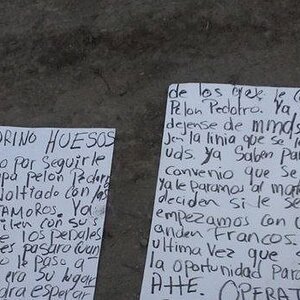 ORINO HUESOS
o por seguirle
pelon
oltiado con las
AMOROS. Ya
ilen con su s
los pedales
pasaro cuen
le paso a
era su lugar
dra esperar
de los que le
Pelon Pedorro. Ya
dejense de mmd
en la linia que se
uds. ya saben Pa
convenio que se
ya le paramos al ma
deciden si le se
empezamos con
anden francos.
ultima vez que
la oportunidad Para
ATTE. OPERAT